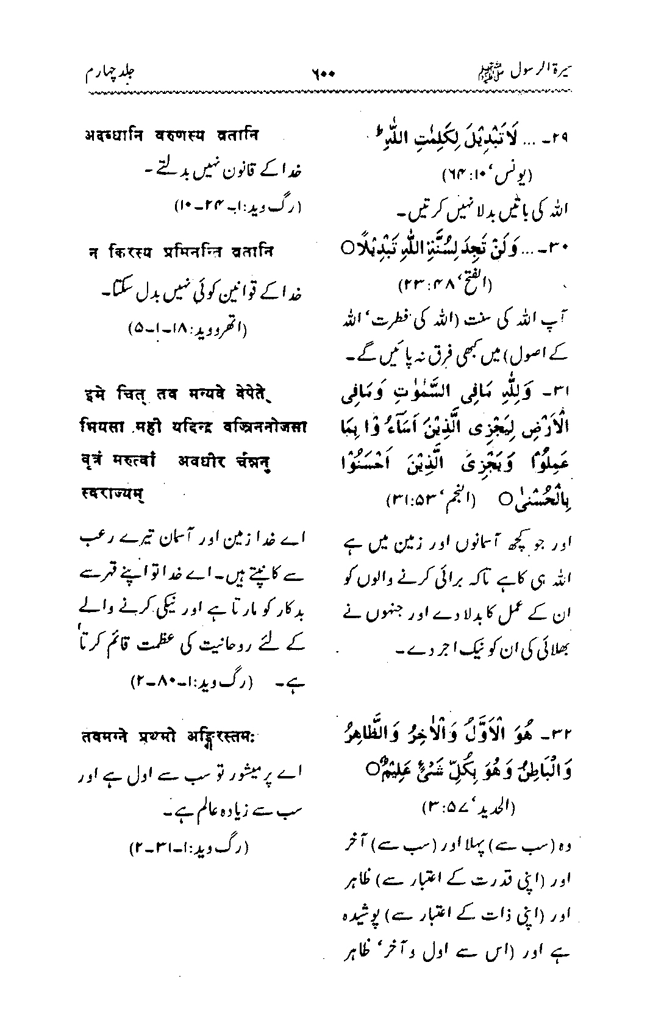 سیرۃ الرسول ﷺ
۶۰۰
جلد چہارم
۲۹۔ ... لَا تَبْدِیْلَ لِکَلِمٰتِ اللّٰہِ ؕ
(یونس، ۱۰: ۶۴)
اللہ کی باتیں بدلا نہیں کرتیں۔
۳۰۔ ... وَلَنْ تَجِدَ لِسُنَّۃِ اللّٰہِ تَبْدِیْلًا○
(الفتح، ۴۸: ۲۳)
آپ اللہ کی سنت (اللہ کی فطرت، اللہ
کے اصول) میں کبھی فرق نہ پائیں گے۔
۳۱۔ وَلِلّٰہِ مَافِی السَّمٰوٰتِ وَمَافِی
الْاَرْضِ لِیَجْزِیَ الَّذِیْنَ اَسَآءُ وْا بِمَا
عَمِلُوْا وَیَجْزِیَ الَّذِیْنَ اَحْسَنُوْا
بِالْحُسْنٰی○ (النجم، ۵۳: ۳۱)
اور جو کچھ آسمانوں اور زمین میں ہے
اللہ ہی کا ہے تاکہ برائی کرنے والوں کو
ان کے عمل کا بدلا دے اور جنہوں نے
بھلائی کی ان کو نیک اجر دے۔
۳۲۔ ھُوَ الْاَوَّلُ وَالْاٰخِرُ وَالظَّاھِرُ
وَالْبَاطِنُ وَھُوَ بِکُلِّ شَیْءٍ عَلِیْمٌ○
(الحدید، ۵۷: ۳)
وہ (سب سے) پہلا اور (سب سے) آخر
اور (اپنی قدرت کے اعتبار سے) ظاہر
اور (اپنی ذات کے اعتبار سے) پوشیدہ
ہے اور (اس سے اول و آخر، ظاہر
अदब्धानि वरुणस्य व्रतानि
خدا کے قانون نہیں بدلتے۔
(رگ وید: ۱۔ ۲۴۔ ۱۰)
न किरस्य प्रमिनन्ति व्रतानि
خدا کے قوانین کوئی نہیں بدل سکتا۔
(اتھر وید: ۱۸۔ ۱۔ ۵)
इमे चित् तव मन्यवे वेपेते
भियसा मही यदिन्द्र वज्रिनोजसा
वृत्रं मरुत्वां अवधीर चंन्ननु
स्वराज्यम्
اے خدا زمین اور آسمان تیرے رعب
سے کانپتے ہیں۔ اے خدا تو اپنے قہر سے
بدکار کو مارتا ہے اور نیکی کرنے والے
کے لئے روحانیت کی عظمت قائم کرتا
ہے۔ (رگ وید: ۱۔ ۸۰۔ ۲)
त्वमग्ने प्रथमो अङ्गिरस्तमः
اے پرمیشور تو سب سے اول ہے اور
سب سے زیادہ عالم ہے۔
(رگ وید: ۱۔ ۳۱۔ ۲)